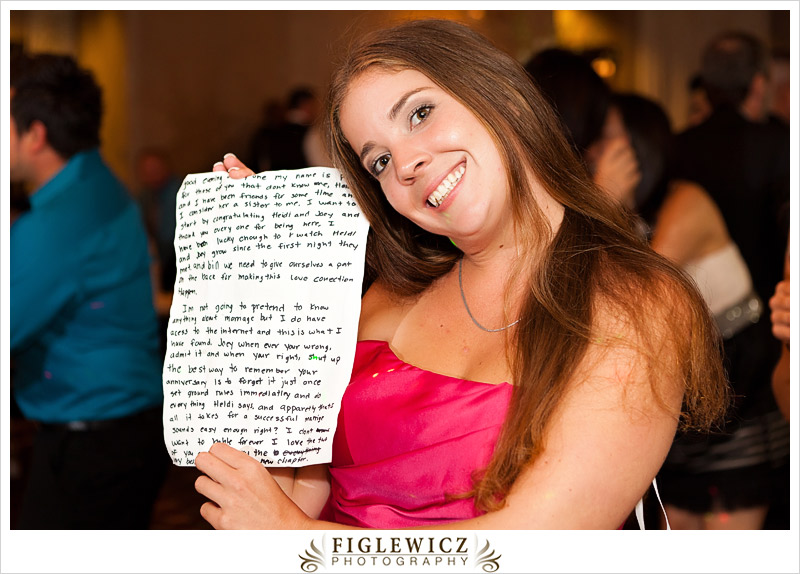 good evening my name is
for those of you that dont know me,
and I have been friends for some time and
I consider her a sister to me. I want to
start by congratulating Heidi and Joey and
thank you every one for being here. I
have been lucky enough to watch Heidi
and Joey grow since the first night they
met and bill we need to give ourselves a pat
on the back for making this love conection
Happen.
I'm not going to pretend to know
anything about marriage but I do have
acess to the internet and this is what I
have found. Joey when ever your wrong,
admit it and when your right, shut up
the best way to remember your
anniversary is to forget it just once
set ground rules immediatley and do
everything Heidi says, and apparetly thats
all it takes for a successful
sounds easy enough right? I dont
want to forever I love the two
of you the everything
new chapter.
FIGLEWICZ
PHOTOGRAPHY